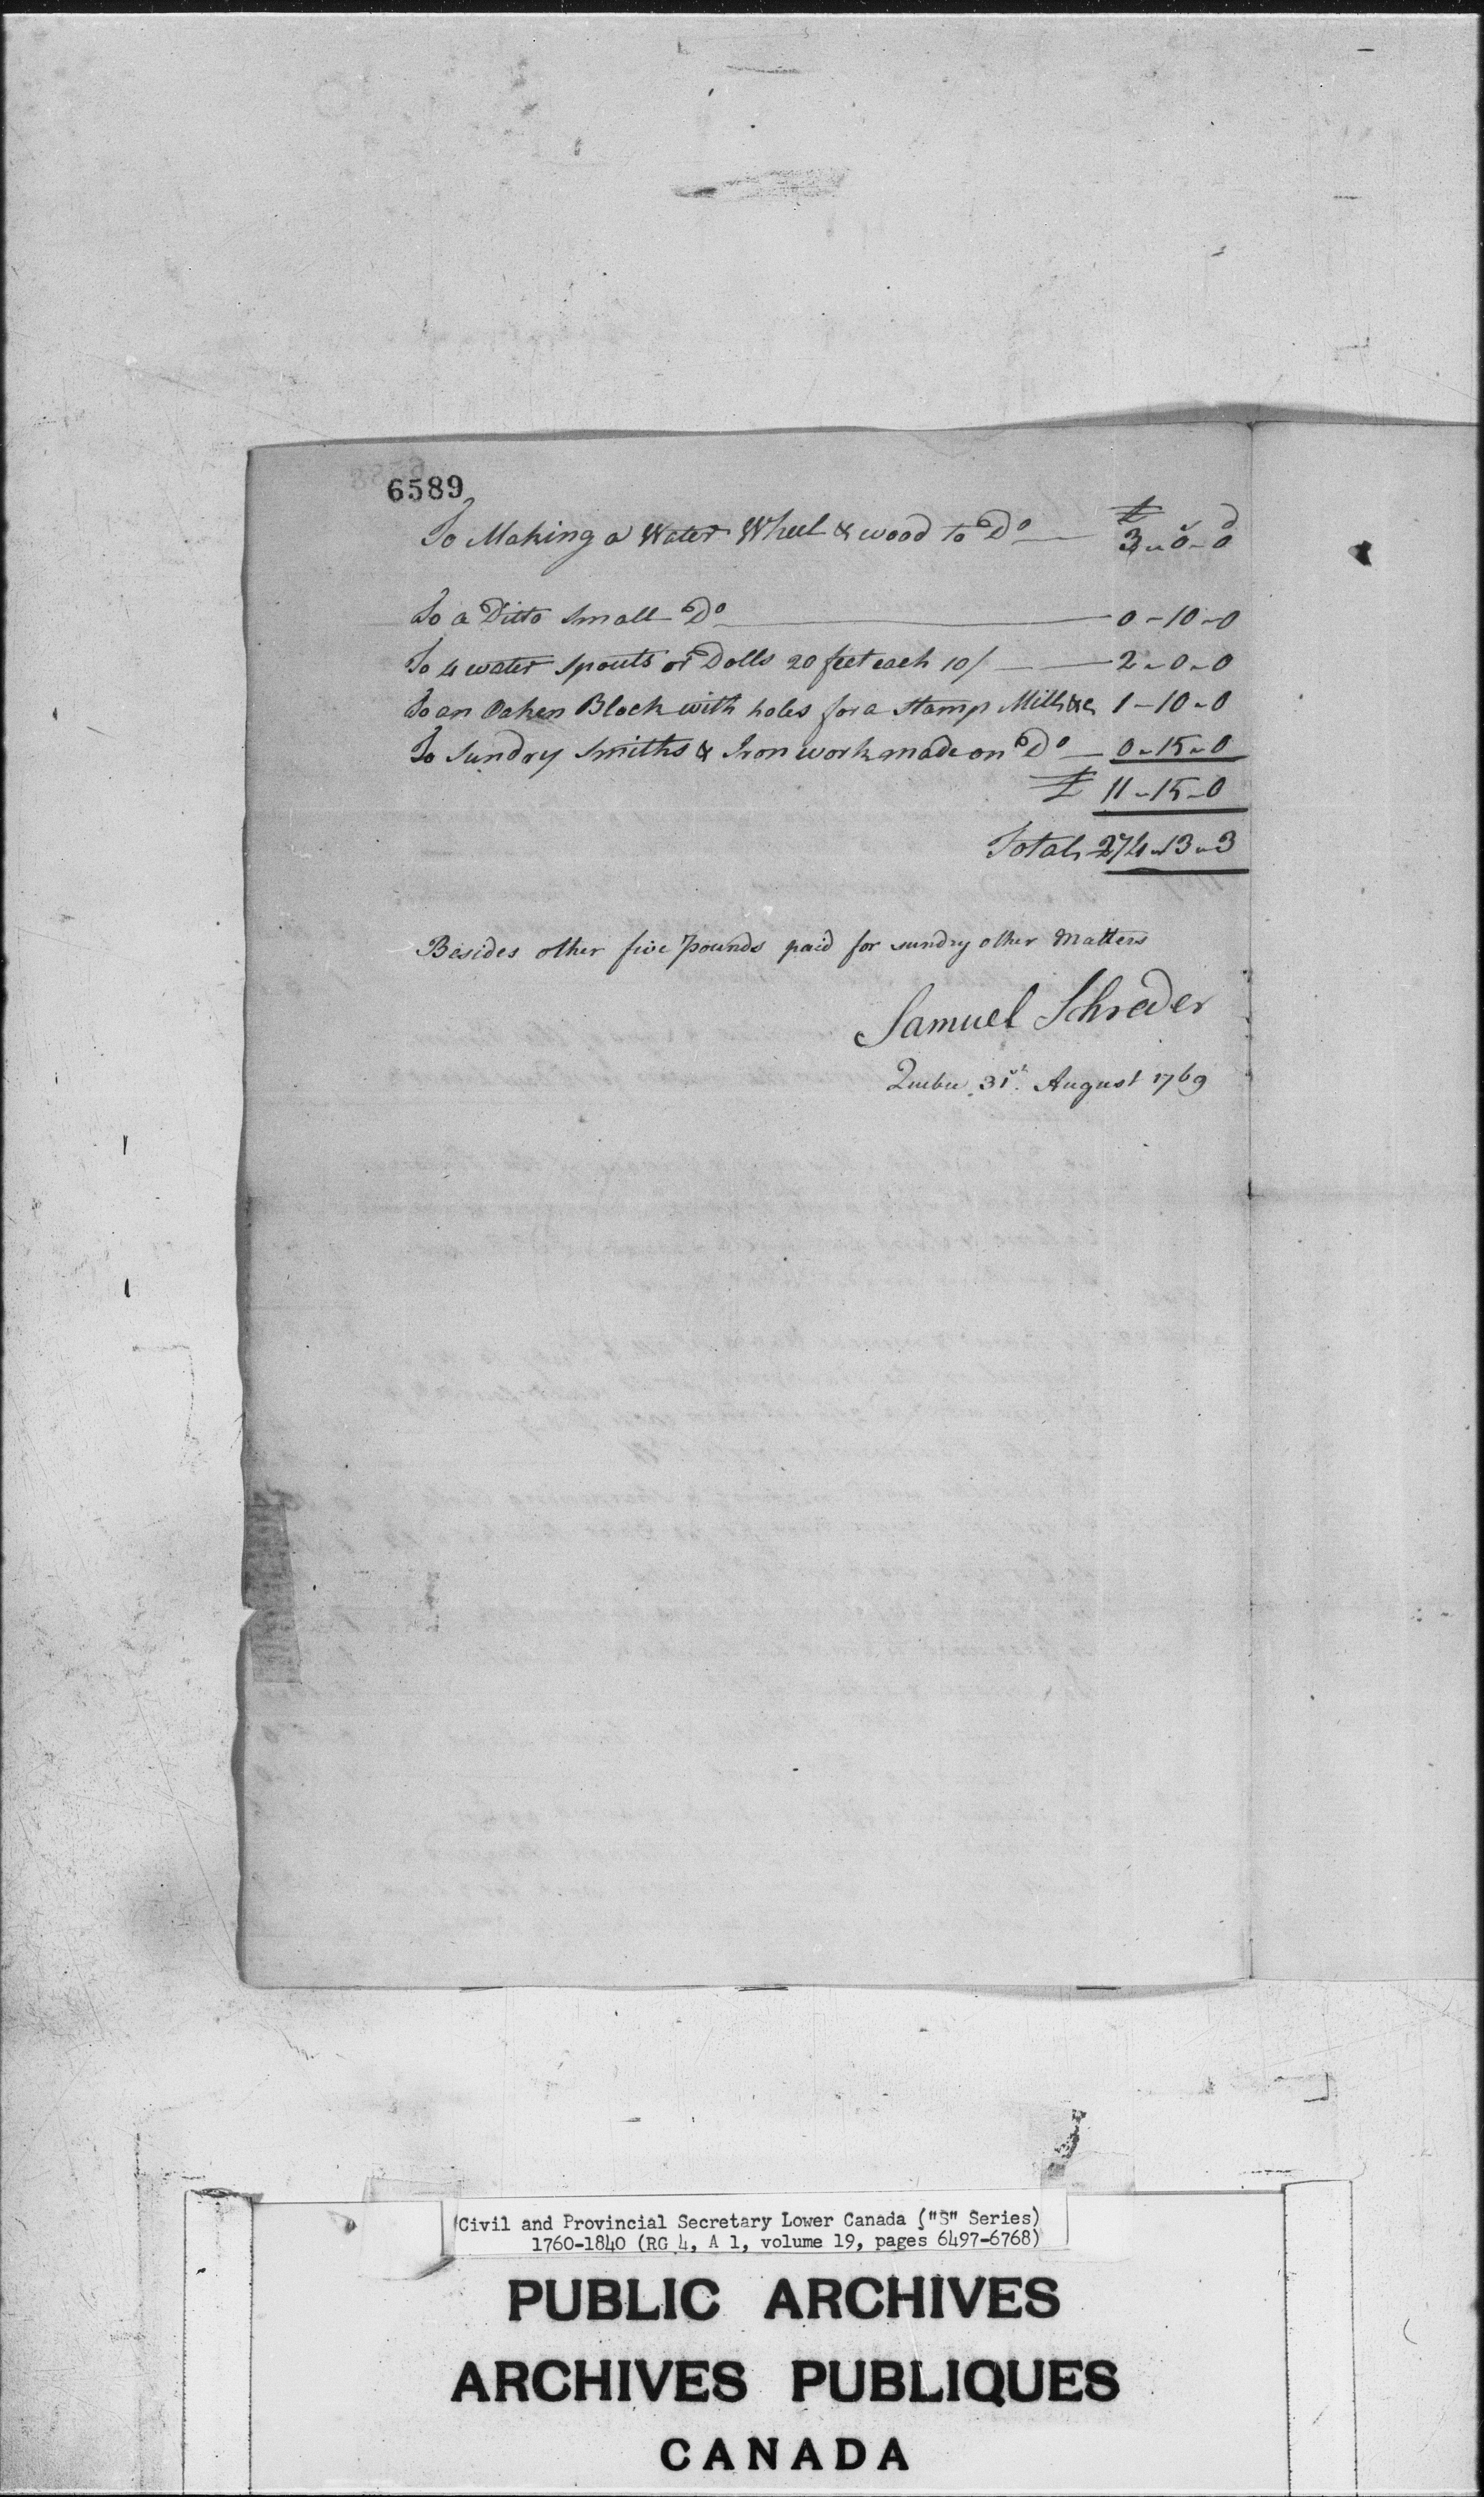 6589
£ s d
To Making a Water Wheel & wood to Do — 3 - 0 - 0
To a Ditto Small Do — 0 - 10 - 0
To 4 water spouts or Dolls 20 feet each 10/ — 2 - 0 - 0
To an Oaken Block with holes for a Stamp Mill &c 1 - 10 - 0
To Sundry Smiths & Iron work made on Do — 0 - 15 - 0
£ 11 - 15 - 0
Total 274 - 13 - 3
Besides other five Pounds paid for sundry other Matters
Samuel Schreder
Quebec 31st August 1769
Civil and Provincial Secretary Lower Canada ("S" Series)
1760-1840 (RG 4, A 1, volume 19, pages 6497-6768)
PUBLIC ARCHIVES
ARCHIVES PUBLIQUES
CANADA